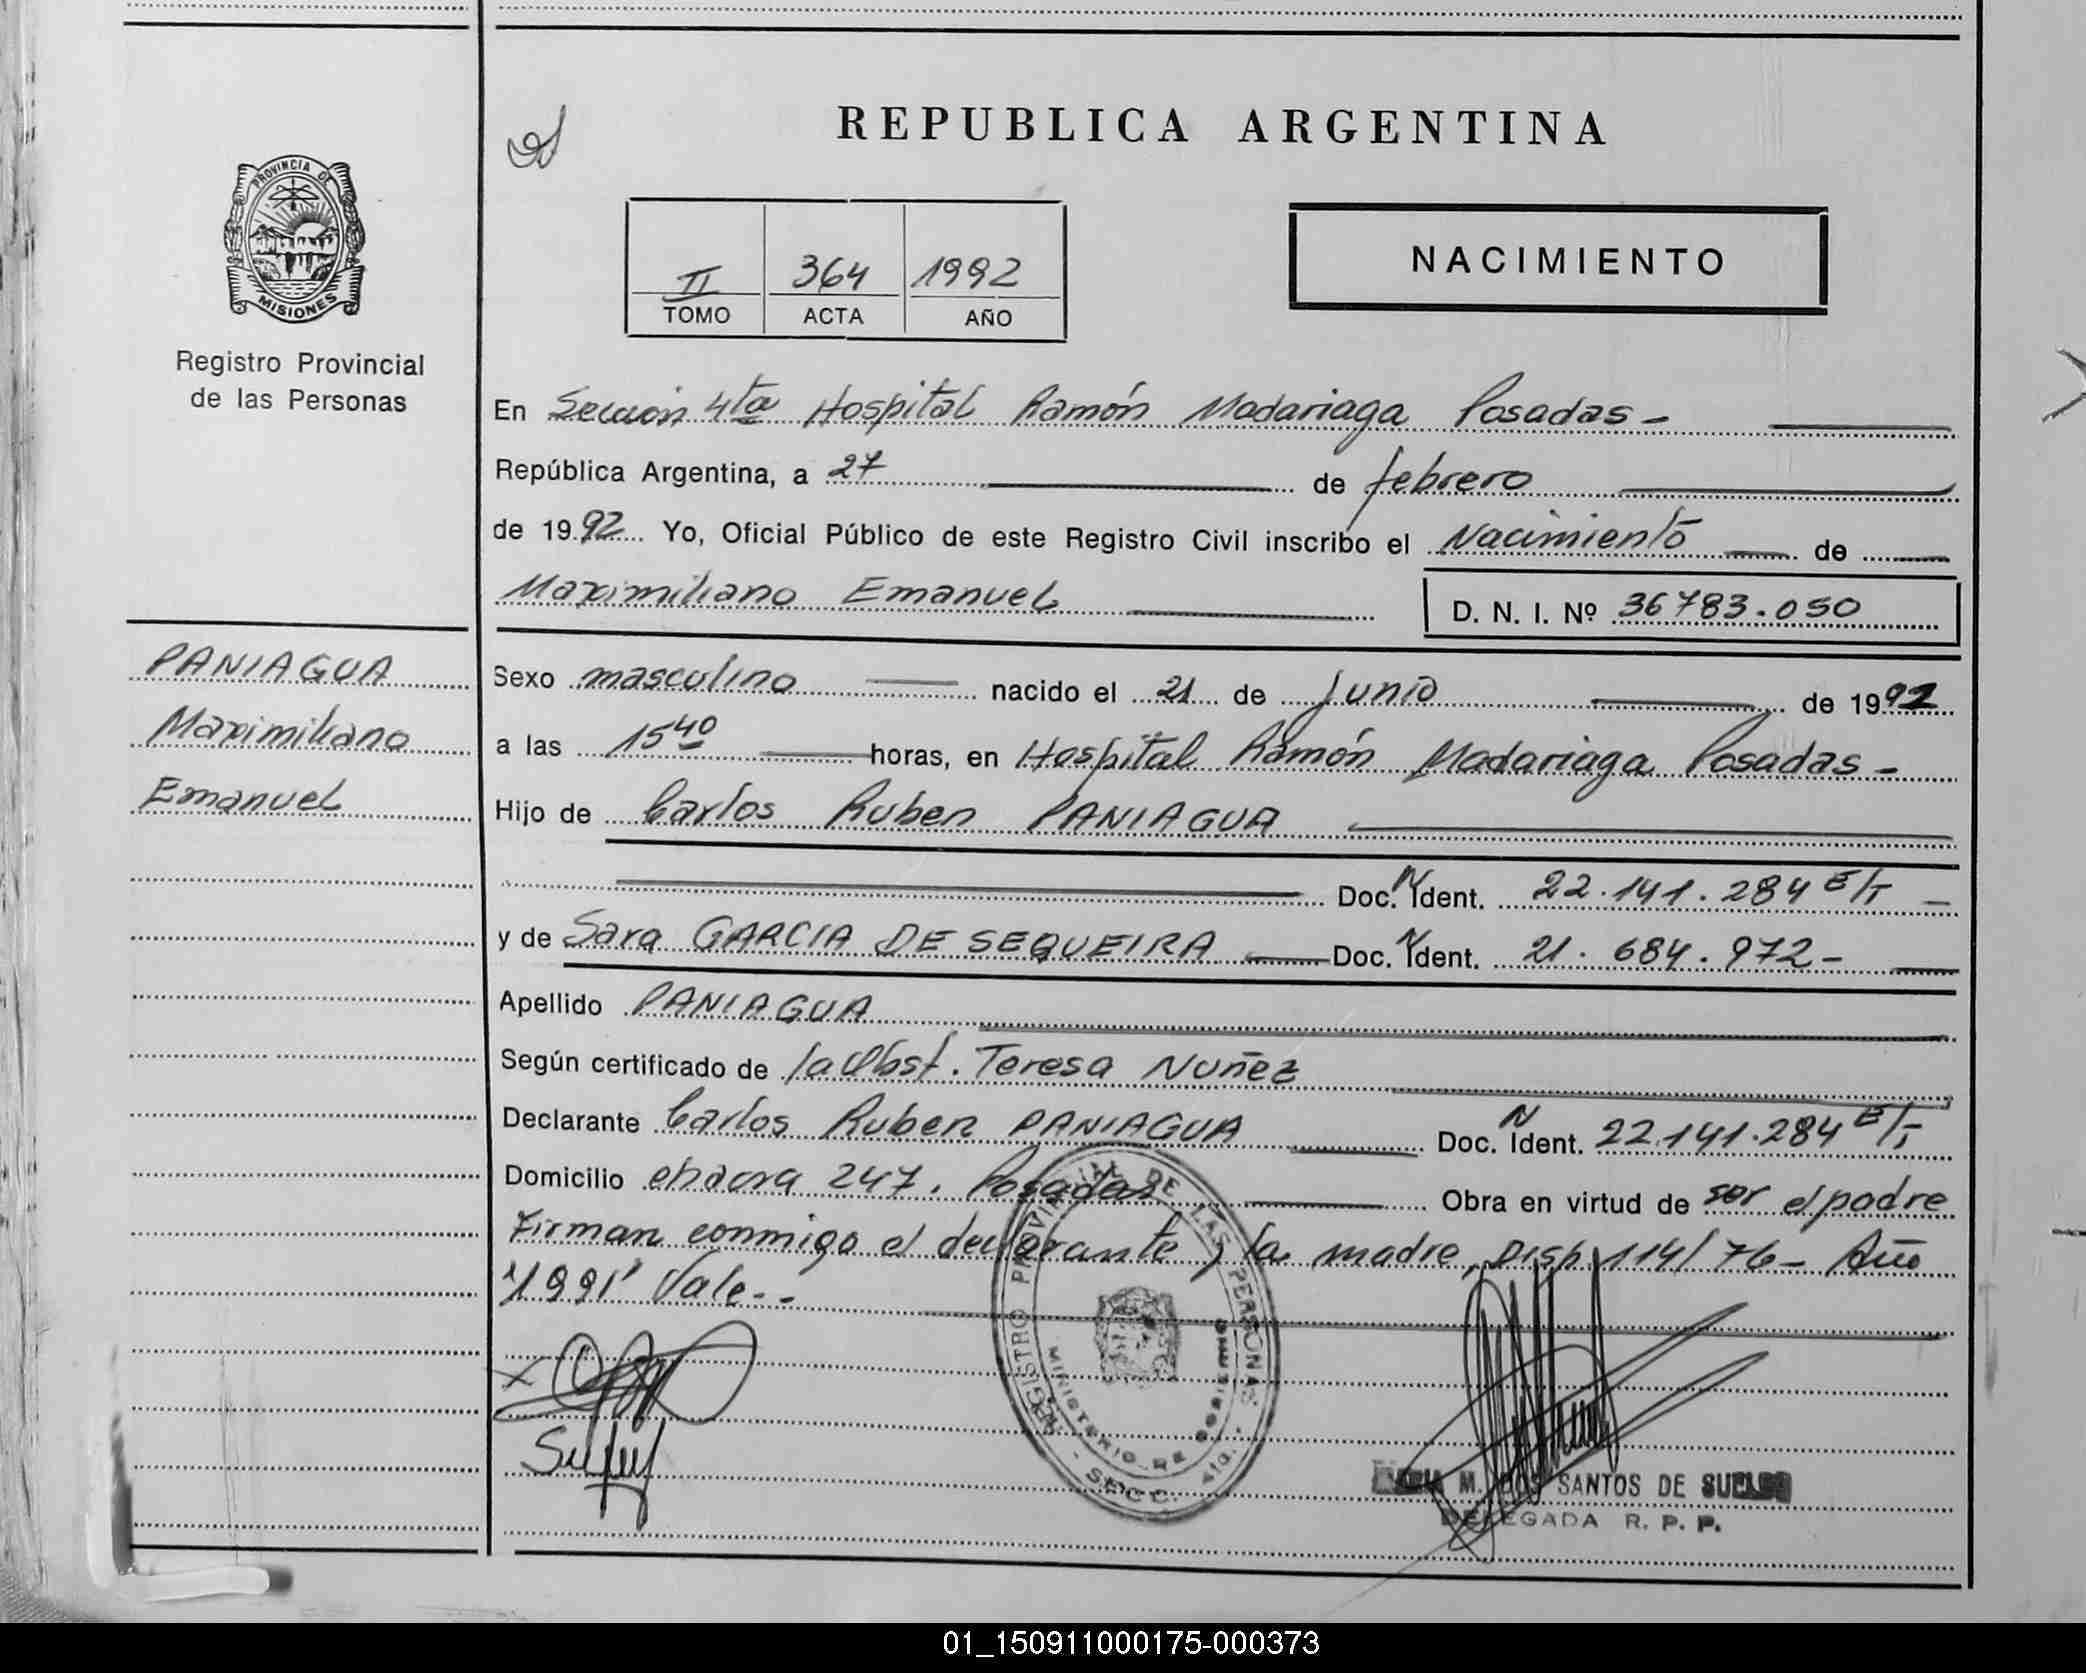 REPUBLICA ARGENTINA
PROVINCIA DE
MISIONES
Registro Provincial
de las Personas
II 364 1992
TOMO ACTA AÑO
NACIMIENTO
En Sección 4ta Hospital Ramón Madariaga Posadas -
República Argentina, a 27 de febrero
de 1992 Yo, Oficial Público de este Registro Civil inscribo el Nacimiento de
Maximiliano Emanuel D. N. I. Nº 36783.050
PANIAGUA
Maximiliano
Emanuel
Sexo masculino nacido el 21 de Junio de 1992
a las 15 40 horas, en Hospital Ramón Madariaga Posadas -
Hijo de Carlos Ruben PANIAGUA
Doc. N Ident. 22.141.284 E/T -
y de Sara GARCIA DE SEQUEIRA Doc. N Ident. 21.684.972 -
Apellido PANIAGUA
Según certificado de la Obst. Teresa Nuñez
Declarante Carlos Ruben PANIAGUA Doc. N Ident. 22.141.284 E/T
Domicilio chacra 247. Posadas Obra en virtud de ser el padre
Firman conmigo el declarante y la madre, Disp. 114/76 - Año
"1991" Vale--
REGISTRO PROVINCIAL DE LAS PERSONAS
MINISTERIO DE GOBIERNO
SECC. 4ta.
M. DOS SANTOS DE
DELEGADA R. P. P.
01_150911000175-000373